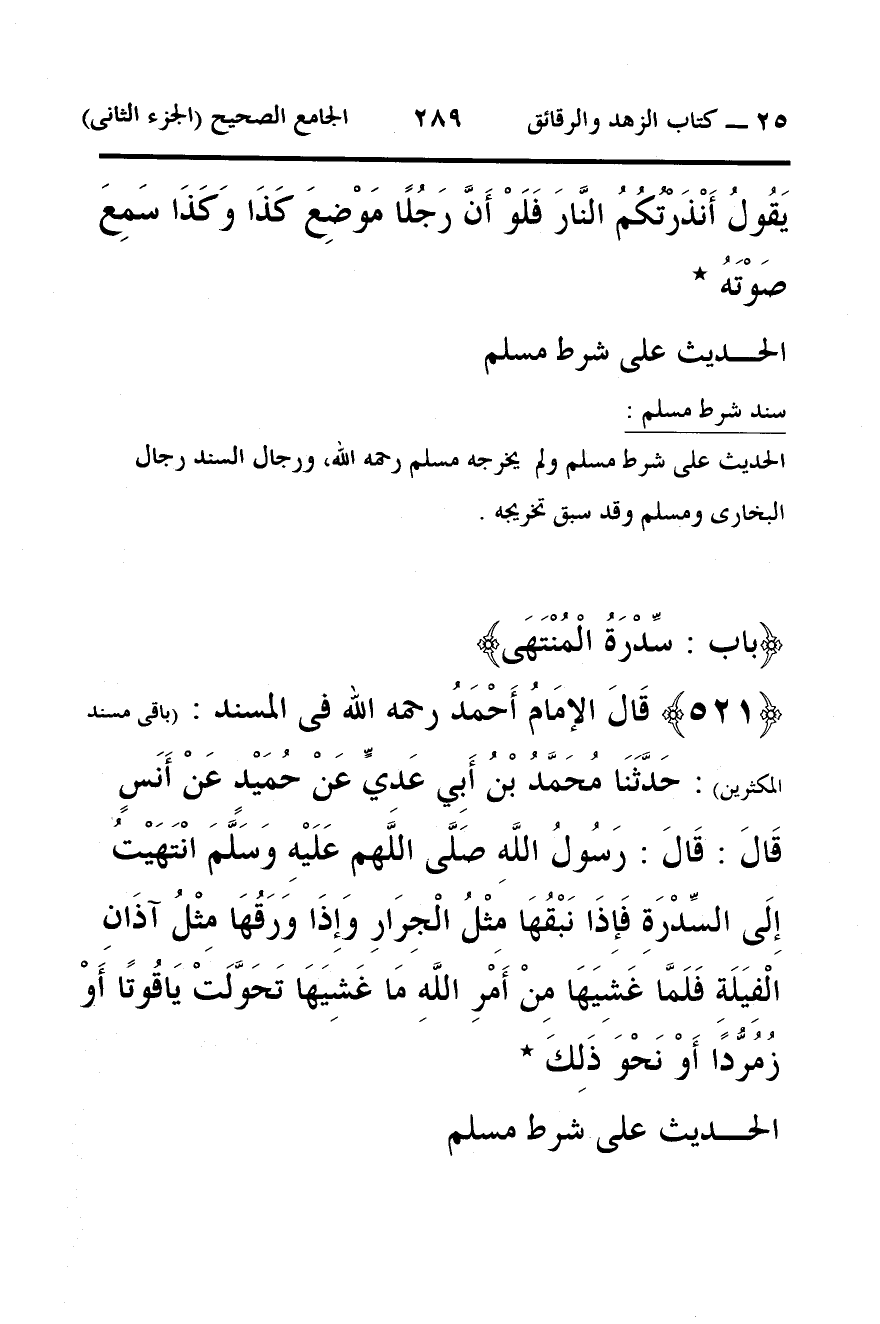 ٢٥ ــ كتاب الزهد والرقائق ٢٨٩ الجامع الصحيح (الجزء الثانى)
يَقُولُ أَنْذَرْتُكُمُ النَّارَ فَلَوْ أَنَّ رَجُلًا مَوْضِعَ كَذَا وَكَذَا سَمِعَ
صَوْتَهُ *
الحـــديث على شرط مسلم
سند شرط مسلم :
الحديث على شرط مسلم ولم يخرجه مسلم رحمه الله، ورجال السند رجال
البخارى ومسلم وقد سبق تخريجه .
﴿باب : سِّدْرَةُ الْمُنْتَهَى﴾
﴿٥٢١﴾ قَالَ الإمَامُ أَحْمَدُ رحمه الله فى المسند : (باقى مسند
المكثرين) : حَدَّثَنَا مُحَمَّدُ بْنُ أَبِي عَدِيٍّ عَنْ حُمَيْدٍ عَنْ أَنَسٍ
قَالَ : قَالَ : رَسُولُ اللَّهِ صَلَّى اللَّهم عَلَيْهِ وَسَلَّمَ انْتَهَيْتُ
إِلَى السِّدْرَةِ فَإِذَا نَبْقُهَا مِثْلُ الْجِرَارِ وَإِذَا وَرَقُهَا مِثْلُ آذَانِ
الْفِيَلَةِ فَلَمَّا غَشِيَهَا مِنْ أَمْرِ اللَّهِ مَا غَشِيَهَا تَحَوَّلَتْ يَاقُوتًا أَوْ
زُمُرُّدًا أَوْ نَحْوَ ذَلِكَ *
الحـــديث على شرط مسلم